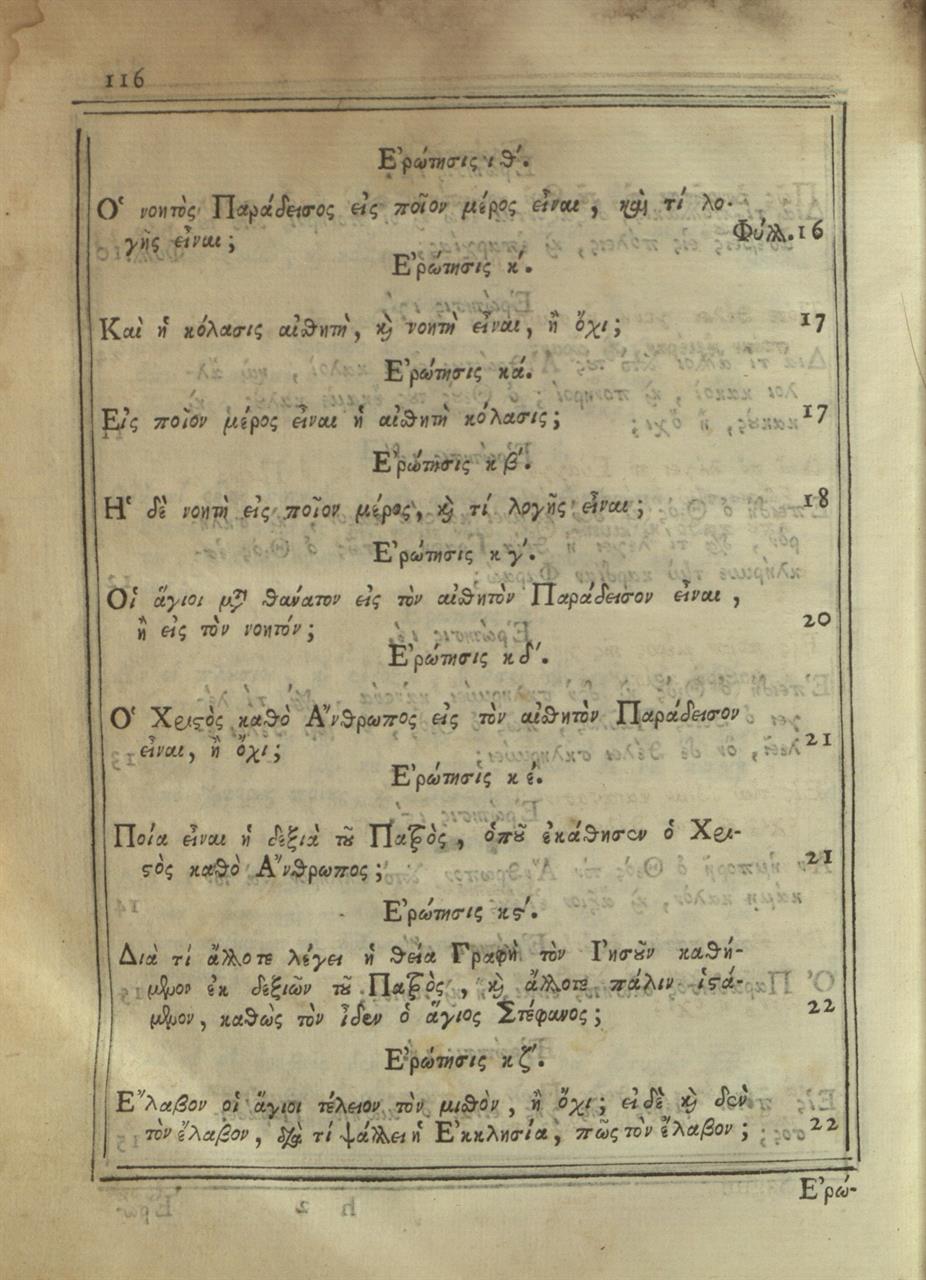 116
Ε᾿ρώτησις ιθ´.
Ο῾ νοητὸς Παράδεισος εἰς ποῖον μέρος εἶναι, καὶ τί λο-
γῆς εἶναι; Φύλλ. 16
Ε᾿ρώτησις κ´.
Καὶ ἡ κόλασις αἰσθητὴ, καὶ νοητὴ εἶναι, ἢ ὄχι; 17
Ε᾿ρώτησις κά.
Εἰς ποῖον μέρος εἶναι ἡ αἰσθητὴ κόλασις; 17
Ε᾿ρώτησις κβ´.
Η῾ δὲ νοητὴ εἰς ποῖον μέρος, καὶ τί λογῆς εἶναι; 18
Ε᾿ρώτησις κγ´.
Οἱ ἅγιοι μετὰ θάνατον εἰς τὸν αἰσθητὸν Παράδεισον εἶναι,
ἢ εἰς τὸν νοητόν; 20
Ε᾿ρώτησις κδ´.
Ο῾ Χριστὸς καθὸ Α῎νθρωπος εἰς τὸν αἰσθητὸν Παράδεισον
εἶναι, ἢ ὄχι; 21
Ε᾿ρώτησις κέ.
Ποία εἶναι ἡ δεξιὰ τοῦ Πατρὸς, ὁποῦ ἐκάθησεν ὁ Χρι-
στὸς καθὸ Α῎νθρωπος; 21
Ε᾿ρώτησις κϛ´.
Διὰ τί ἄλλοτε λέγει ἡ θεία Γραφὴ τὸν Ιησοῦν καθή-
μενον ἐκ δεξιῶν τοῦ Πατρὸς, καὶ ἄλλοτε πάλιν ἱστά-
μενον, καθὼς τὸν ἶδεν ὁ ἅγιος Στέφανος; 22
Ε᾿ρώτησις κζ´.
Ε῎λαβον οἱ ἅγιοι τέλειον τὸν μισθὸν, ἢ ὄχι; εἰδὲ καὶ δεν
τὸν ἔλαβον, διὰ τί ψάλλει ἡ Ε᾿κκλησία, πῶς τὸν ἔλαβον; 22
Ε᾿ρώ-